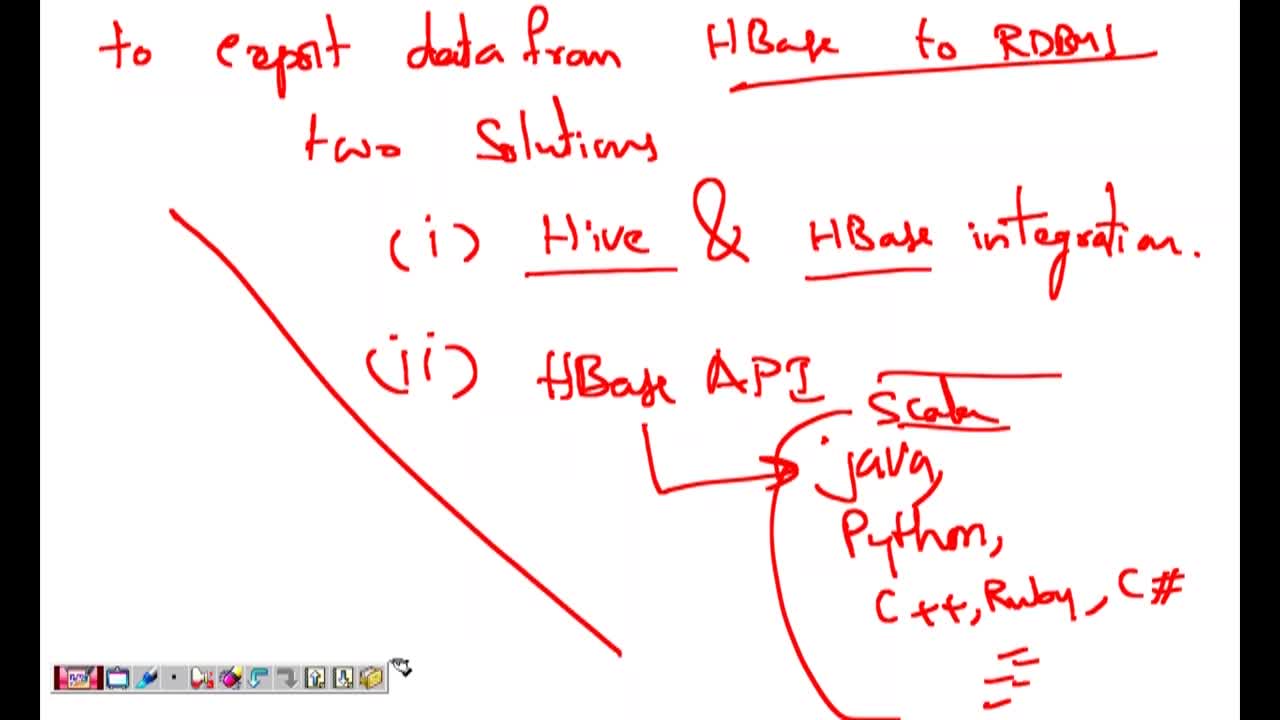 to export data from HBase to RDBMS
two solutions
(i) Hive & HBase integration.
(ii) HBase API
Scala
java,
Python,
C++, Ruby, C#